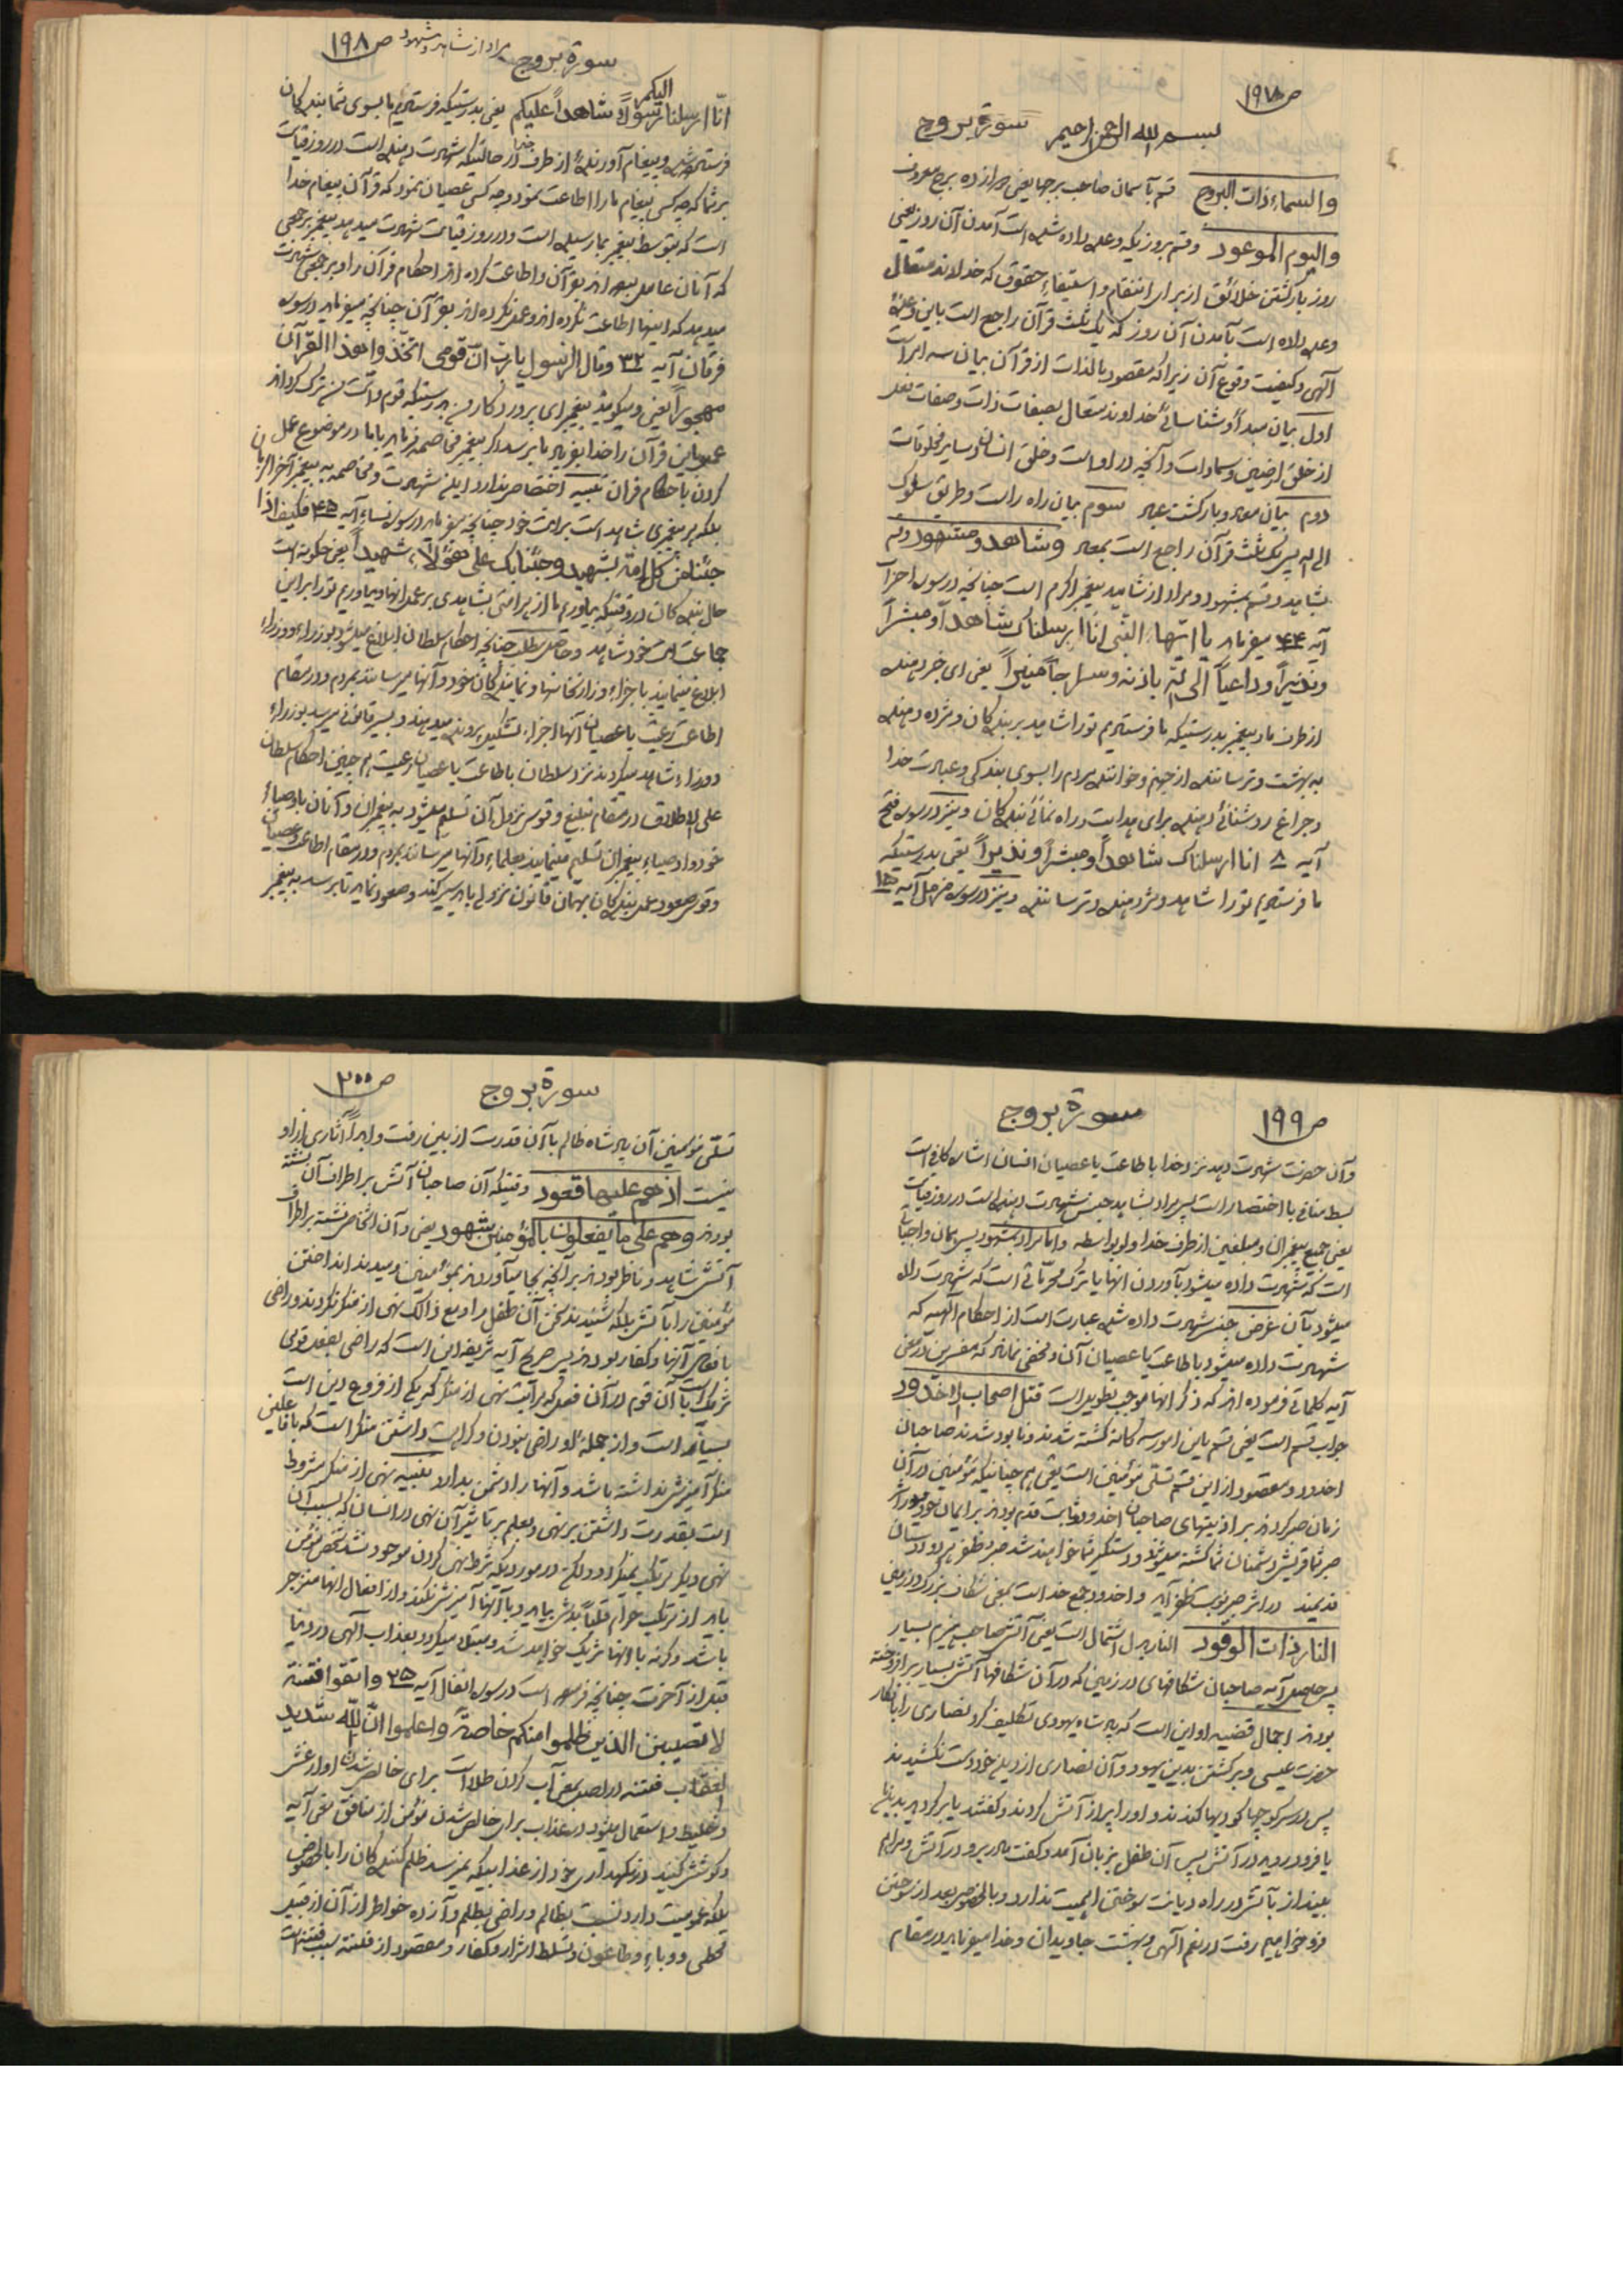 ص ۱۹۷
بسم الله الرحمن الرحیم سورة بروج
والسماء ذات البروج قسم بآسمان صاحب برجها یعنی دوازده برج معروف
والیوم الموعود وقسم بروزیکه وعده داده شده است آمدن آن روز یعنی
روز بازگشتن خلائق از برای انتقام و استیفاء حقوق که خداوند متعال
وعده داده است بآمدن آن روز که یک ثلث قرآن راجع است باین وعدهٔ
الهی وکیفیت وقوع آن زیرا که مقصود بالذات از قرآن بیان سه امر است
اول بیان مبدأ و شناسائی خداوند متعال بصفات ذات وصفات فعل
از خلق ارضین وسماوات وآنچه در او است وخلق انسان وسایر مخلوقات
دوم بیان معاد وبازگشت عباد سوم بیان راه راست وطریق سلوک
الی الله پس یک ثلث قرآن راجع است بمعاد وشاهد ومشهود وقسم
بشاهد وقسم بمشهود ومراد از شاهد پیغمبر اکرم است چنانچه در سوره احزاب
آیه ۴۴ میفرماید یا ایّها النبی انّا ارسلناک شاهداً ومبشراً
ونذیراً وداعیاً الی الله باذنه وسراجاً منیراً یعنی ای خبر دهنده
از طرف ما و پیغمبر بدرستیکه ما فرستادیم تو را شاهد بر بندگان ومژده دهنده
به بهشت وترساننده از جهنم وخواننده مردم را بسوی بندگی وعبادت خدا
وچراغ روشنائی دهنده برای هدایت وراه نمائی بندگان ونیز در سوره فتح
آیه ۸ انا ارسلناک شاهداً ومبشراً ونذیراً یعنی بدرستیکه
ما فرستادیم تو را شاهد ومژده دهنده وترساننده ونیز در سوره مزمل آیه ۱۵
سورة بروج مراد از شاهد و مشهود ص ۱۹۸
انّا ارسلنا الیکم رسولاً شاهداً علیکم یعنی بدرستیکه فرستادیم ما بسوی شما بندگان
فرستاده شده وپیغام آورنده از طرف خدا در حالتیکه شهادت دهنده است در روز قیامت
بر شما که چه کسی پیغام ما را اطاعت نمود وچه کسی عصیان نمود که قرآن پیغام خدا
است که بتوسط پیغمبر بما رسیده است ودر روز قیامت شهادت میدهد پیغمبر بر جمعی
که آنان عامل بوده اند بقرآن واطاعت کرده اند احکام قرآن را وبر جمعی شهادت
میدهد که اینها اطاعت نکرده اند وعمل نکرده اند بقرآن چنانچه میفرماید در سوره
فرقان آیه ۳۲ وقال الرسول یا رب انّ قومی اتخذوا هذا القرآن
مهجوراً یعنی ومیگوید پیغمبر ای پروردگار من بدرستیکه قوم وامت من ترک کردند
عمل باین قرآن را خدا بفریاد ما برسد اگر پیغمبر مخاصمه فرماید با ما در موضوع عمل
کردن باحکام قران تنبیه اختصاص ندارد این شهادت ومخاصمه به پیغمبر آخر الزمان
بلکه هر پیغمبری شاهد است بر امت خود چنانچه میفرماید در سوره نساء آیه ۴۵ فکیف اذا
جئنا من کل امة بشهید وجئنا بک علی هؤلاء شهیداً یعنی چگونه است
حال بندگان در وقتیکه بیاوریم ما از هر امتی شاهدی بر عمل انها وبیاوریم تو را بر این
جماعت امت خود شاهد وحاصل مطلب چنانچه احکام سلطان ابلاغ میشود بوزراء ووزراء
ابلاغ مینمایند باجزاء وزارتخانها ونمایندگان خود وآنها میرسانند بمردم ودر مقام
اطاعت رعیت یا عصیان آنها اجزاء تشکیل پرونده میدهند وبسیر قانونی میرسد بوزراء
ووزراء شاهد میگردند نزد سلطان باطاعت یا عصیان رعیت هم چنین احکام سلطان
علی الاطلاق در مقام تبلیغ وقوس نزول آن تسلیم میشود به پیغمبران وآنان باوصیاء
خود واوصیاء پیغمبران تسلیم مینمایند بعلماء وآنها میرسانند بمردم ودر مقام اطاعت وعصیان
وقوس صعود عمل بندگان بهمان قانون نزولی باید سیر کند وصعود نماید تا برسد به پیغمبر
ص ۱۹۹ سورة بروج
وآن حضرت شهادت دهد نزد خدا باطاعت یا عصیان انسان اشاره کافی است
بسط منافی با اختصار است پس مراد بشاهد جنس شهادت دهنده است در روز قیامت
یعنی جمیع پیغمبران ومبلغین از طرف خدا ولو بواسطه واما مراد بمشهود پس همان واجباتی
است که شهادت داده میشود بآوردن انها یا ترک محرماتی است که شهادت داده
میشود بآن غرض جنس شهادت داده شده عبارت است از احکام الهیه که
شهادت داده میشود باطاعت یا عصیان آن ومخفی نماند که مفسرین در معنی
آیه کلماتی فرموده اند که ذکر انها موجب تطویل است قتل اصحاب الاخدود
جواب قسم است یعنی قسم باین امور سه گانه کشته شدند ونابود شدند صاحبان
اخدود ومقصود از این قسم تسلّی مؤمنین است یعنی هم چنانیکه مؤمنین در آن
زمان صبر کردند بر اذیتهای صاحبان اخدود وثابت قدم بودند بر ایمان خود در اثر
صبر شما قریش دشمنان شما کشته میشوند ودستگیر شما خواهند شد صبر وظفر هر دو دوستان
قدیمند در اثر صبر نوبت ظفر آید واخدود جمع خد است بمعنی شکاف بزرگ در زمین
النار ذات الوقود النار بدل اشتمال است یعنی آتش صاحب هیزم بسیار
پس حاصل آیه صاحبان شکافهای در زمین که در آن شکافها آتش بسیار برافروخته
بودند اجمال قضیه او این است که پادشاه یهودی تکلیف کرد نصاری را بانکار
حضرت عیسی وبرگشتن بدین یهود وآن نصاری از دین خود دست نکشیدند
پس در سر کوچها گودیها کندند واو را پر از آتش کردند وگفتند یا برگردید بدین ما
یا فرو روید در آتش پس آن طفل بزبان آمد وگفت مادر برو در آتش ومرا هم
بینداز بآتش در راه دیانت سوختن اهمیت ندارد وبالخصوص بعد از سوختن
فرو خواهیم رفت در نعم الهی وبهشت جاویدان وخدا میفرماید در مقام
سورة بروج ص ۲۰۰
تسلّی مؤمنین آن پادشاه ظالم با آن قدرت از بین رفت وابداً آثاری از او
نیست اذ هم علیها قعود وقتیکه آن صاحبان آتش بر اطراف آن نشسته
بودند وهم علی ما یفعلون بالمؤمنین شهود یعنی وآن اشخاص نشسته بر اطراف
آتش شاهد وناظر بودند بر آنچه بجا میآوردند بمؤمنین ومیدیدند انداختن
مؤمنین را بآتش بلکه شنیدند سخن آن طفل را ومع ذالک نهی از منکر نکردند وراضی
بافعال آنها وکفار بودند پس صریح آیه شریفه این است که راضی بفعل قومی
شریک است با آن قوم در آن فعل که مراتب نهی از منکر که یکی از فروع دین است
بسیار است واز جملهٔ او راضی نبودن وکراهت داشتن منکر است که با فاعلین
منکر آمیزش نداشته باشد وآنها را دشمن بدارد تنبیه نهی از منکر مشروط
است بقدرت داشتن بر نهی وبعلم بر تاثیر آن نهی در انسان که بسبب آن
نهی دیگر مرتکب نمیگردد ولکن در موردیکه شرط نهی کردن موجود نشد شخص مؤمن
باید از مرتکب حرام قلباً بدش بیاید وبا آنها آمیزش نکند واز افعال انها منزجر
باشد وگرنه با انها شریک خواهد شد ومبتلا میگردد بعذاب الهی در دنیا
قبل از آخرت چنانچه فرموده است در سوره انفال آیه ۲۵ واتقوا فتنة
لا تصیبن الذین ظلموا منکم خاصة واعلموا انّ الله شدید
العقاب فتنه در اصل بمعنی آب کردن طلا است برای خالص شدن او از غش
وخلیط واستعمال میشود در عذاب برای خالص شدن مؤمن از منافق معنی آیه
وکوشش کنید در نگهداری خود از عذابیکه نمیرسد ظلم کنندگان را بالخصوص
بلکه عمومیت دارد نسبت بظالم وراضی بظلم وآزاده خواطر از آن از قبیل
قحطی ووباء وطاعون وتسلط اشرار وکفار ومقصود از فتنه سبب فتنه است